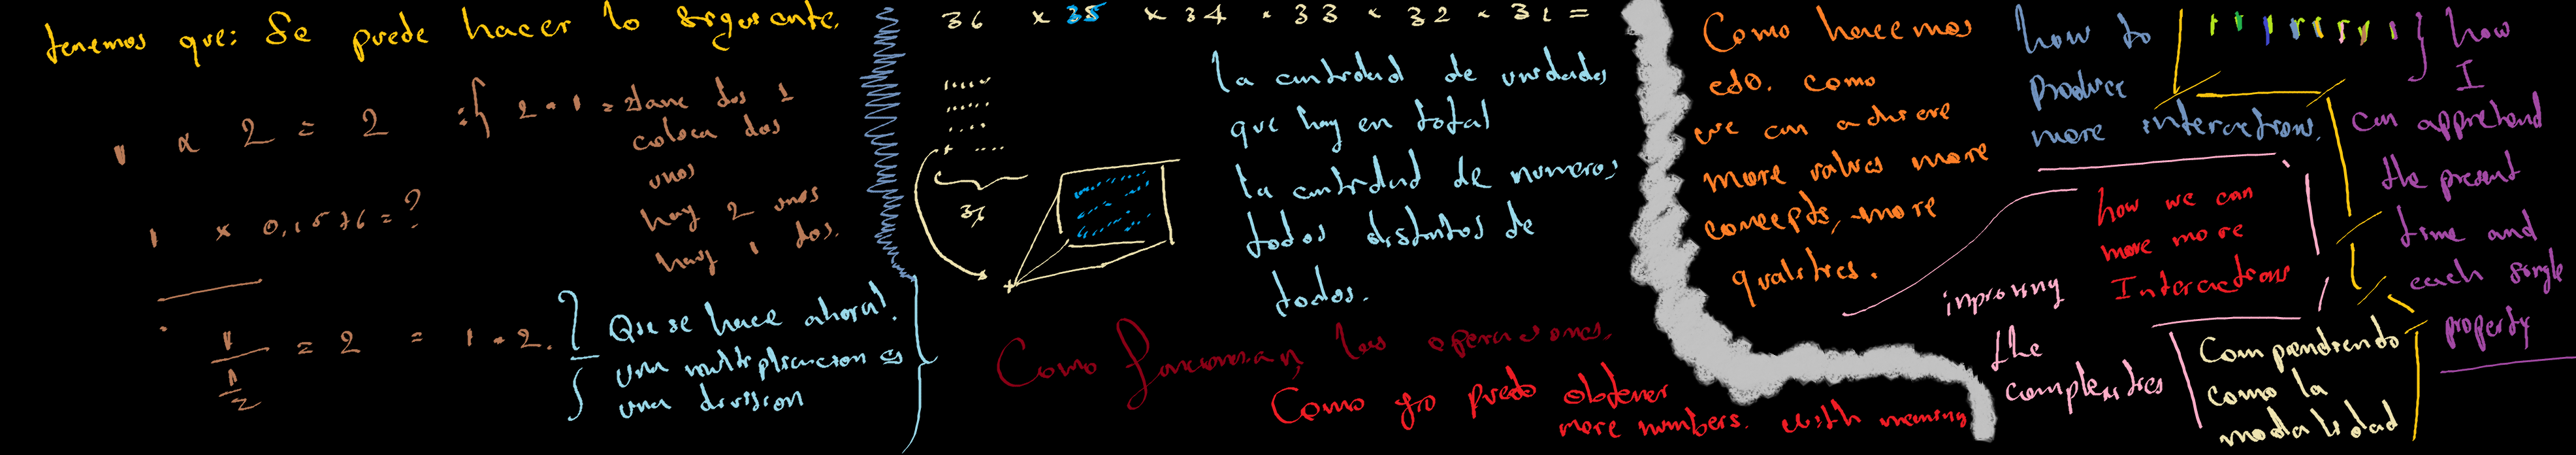 tenemos que: Se puede hacer lo siguiente.
1 x 2 = 2
2 · 1 = dame dos 1
coloca dos
unos
hay 2 unos
hay 1 dos.
1 x 0,1576 = ?
1
1/2
= 2 = 1 · 2.
Que se hace ahora?
una multiplicacion es
una division
36 x 35 x 34 · 33 · 32 · 31 =
36
la cantidad de unidades
que hay en total
la cantidad de numeros
todos distintos de
todos.
Como funcionan las operaciones.
Como yo puedo obtener
more numbers. with meaning
Como hacemos
esto. como
we can achieve
more values more
concepts, more
qualities.
how to
produce
more interactions.
how we can
more more
Interactions
improving
the
complexities
Comprendiendo
como la
modalidad
how
I
can apprehend
the present
time and
each single
property